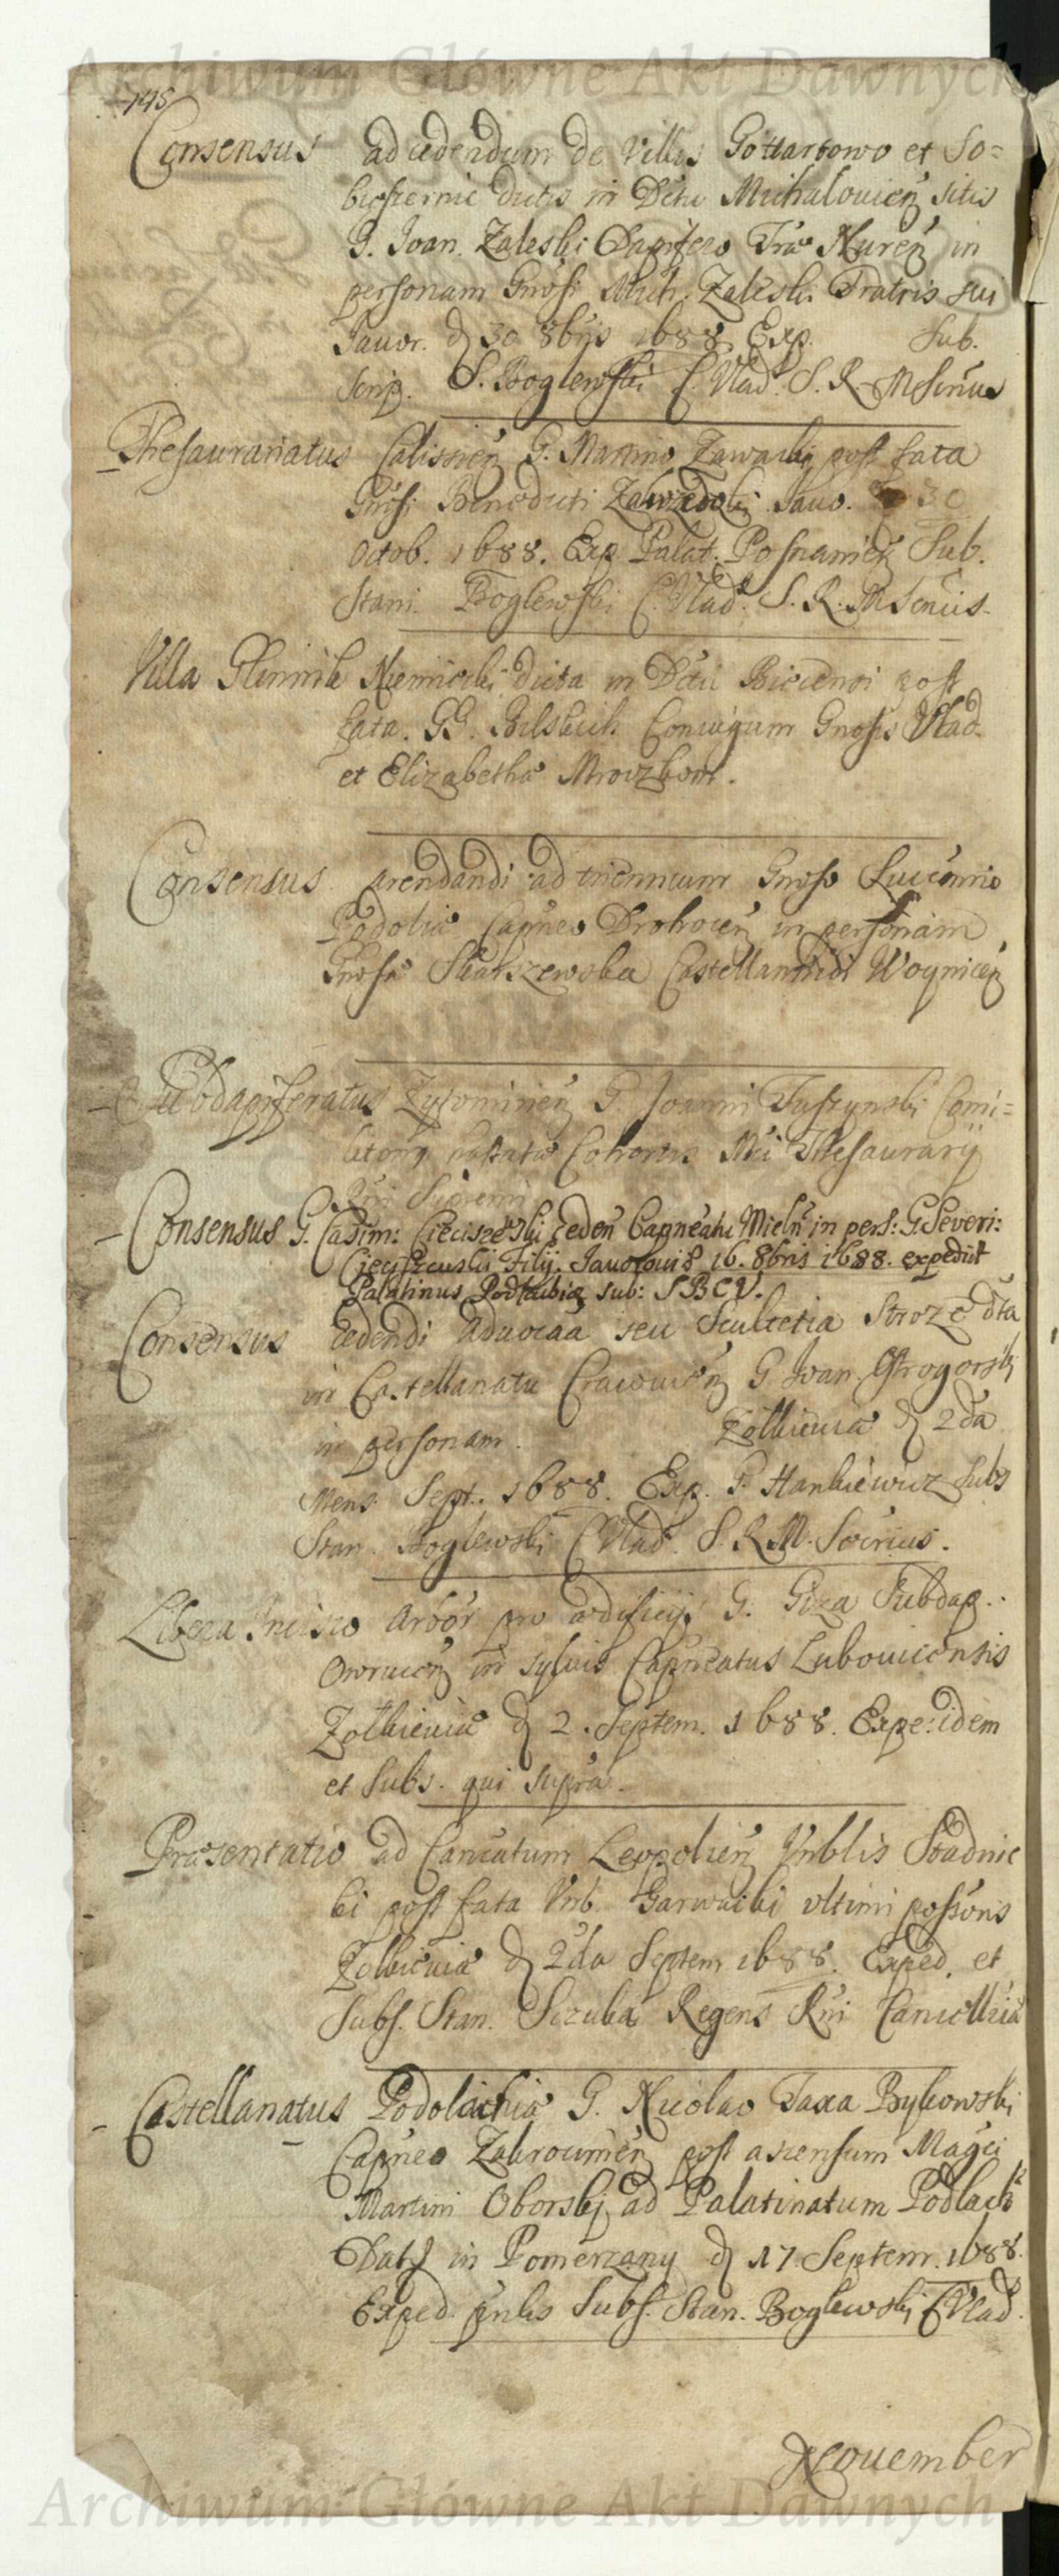 Archiwum Główne Akt Dawnych
148
Consensus ad cedendum de Villis Gottartowo et So=
bierznie dictis in Dctu Michalovien sitis
G. Joan. Zaleski Dapifero Træ Nuren in
personam Gnosi Mich. Zaleski Fratris sui
Javor. d 30 8bris 1688 Exp. Sub.
scrip. S. Boglewski C. Vlad. S. R. M Scrius
Thesaurariatus Calissien G. Martino Zawadzki post fata
Gnosi Benedicti Zakrzewski Javo. d 30
Octob. 1688. Exp. Palat. Posnanien Sub.
Stani. Boglewski C. Vlad. S. R. M Scrius.
Villa Glinnik Niemiecki dicta in Dctu Biecensi post
fata GG. Bilskich Coniugum Gnosis Vlad.
et Elizabetha Mrowzkom.
Consensus arendandi ad triennium Gnoso Succamrio
Podoliæ Capneo Drohocen in personam
Gnosæ Skarszewska Castellanidi Woynicen
Subdapiferatus Zytomirien G. Joanni Tuszynski Comi=
litoni hastatæ Cohortis Mci Thesaurarij
Rni Supremi
Consensus G. Casim: Cieciszewski ceden Capneatu Mieln in pers: G. Severi:
Cieciszewski Filij. Javoroviæ 16. 8bris 1688. expedit
Palatinus Podlachiæ sub: S B C V.
Consensus cedendi Advocatia seu Scultetia Stroze dta
in Castellanatu Cracovien G. Joan. Strogorski
in personam. Zolkieviæ d 2da
Mens. Sept. 1688. Exp. P. Hankiewicz Subs
Stan. Boglewski C Vlad. S. R. M. Scrius.
Libera Incisio Arbor pro ædificijs G. Giza Subdap.
Owrucen in sylvis Capneatus Lubovicensis
Zolkieviæ d 2. Septem. 1688. Expe: idem
et Subs. qui supra.
Præsentatio ad Cancatum Leopolien Vnblis Stadnic
ki post fata Vnb. Garwacki vltimi possoris
Zolkieviæ d 2da Septem 1688. Exped. et
Subs. Stan. Szczuka Regens Rni Cancellriæ
Castellanatus Podolachiæ G. Nicolao Jaxa Bykowski
Capneo Zakroczimen post ascensum Magci
Martini Oborski ad Palatinatum Podlach
Dat in Pomerzany d 17 Septem. 1688.
Exped. pnlis Subs. Stan. Boglewski C Vlad.
November
Archiwum Główne Akt Dawnych